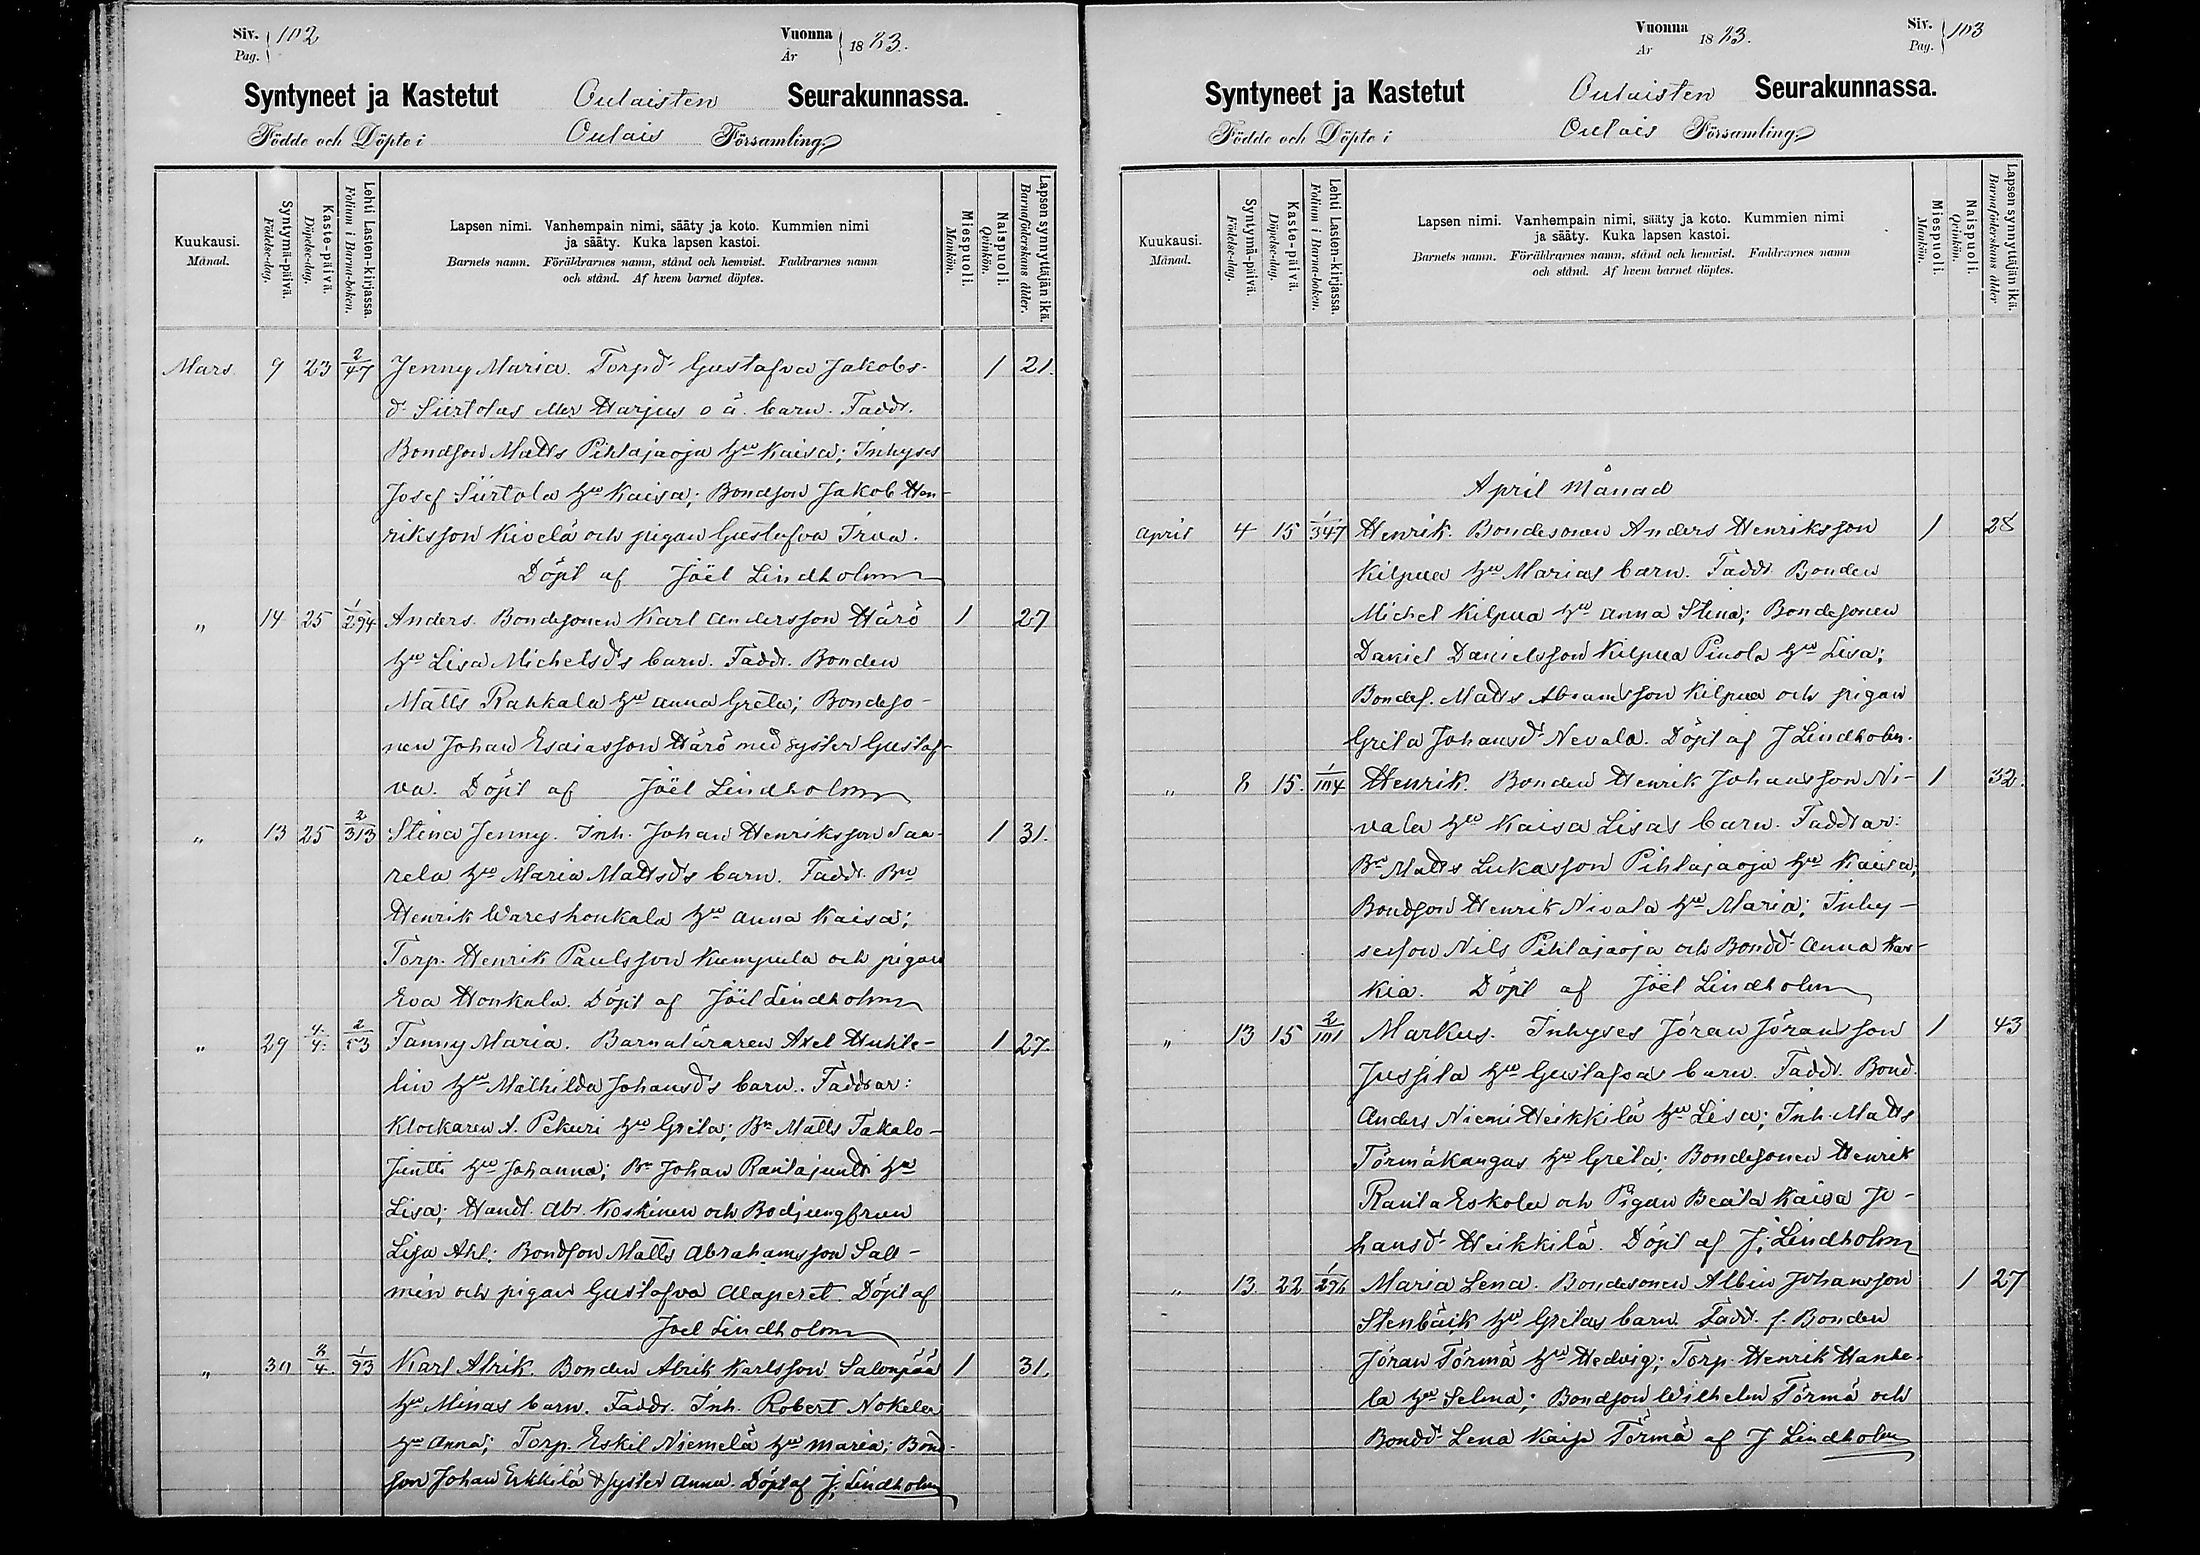 Siv. 102 Vuonna 1883.
Pag. År
Syntyneet ja Kastetut Oulaisten Seurakunnassa.
Födde och Döpte i Oulais Församling
Kuukausi.
Månad.
Syntymä-päivä.
Födelse-dag.
Kaste-päivä.
Döpelse-dag.
Lehti Lasten-kirjassa.
Folium i Barna-boken.
Lapsen nimi. Vanhempain nimi, sääty ja koto. Kummien nimi
ja sääty. Kuka lapsen kastoi.
Barnets namn. Föräldrarnes namn, stånd och hemvist. Faddrarnes namn
och stånd. Af hvem barnet döptes.
Miespuoli.
Mankön.
Naispuoli.
Qvinkön.
Lapsen synnyttäjän ikä.
Barnaföderskans ålder.
Mars. 9 23 2/47 Jenny Maria. Torpd. Gustafva Jakobs- 1 21.
d. Siirtolas eller Harjus o ä. barn. Faddr.
Bondson Matts Pihlajaoja hu Kaisa; Inhyses
Josef Siirtola hu Kaisa; Bondson Jakob Hen-
riksson Kivelä och pigan Gustafva Trua.
Döpt af Joël Lindholm
" 14 25 1/294 Anders. Bondesonen Karl Andersson Härö 1 27
hu Lisa Michelsd's barn. Faddr. Bonden
Matts Rahkala hu Anna Greta; Bondeso-
nen Johan Esaiasson Härö med syster Gustaf-
va. Döpt af Joël Lindholm
" 13 25 2/313 Stina Jenny. Inh. Johan Henriksson Saa- 1 31.
rela hu Maria Mattsd's barn. Faddr. Bn
Henrik Wareshonkala hu Anna Kaisa;
Torp. Henrik Paulsson Kumpula och pigan
Eva Honkala. Döpt af Joël Lindholm
" 29 4/4. 2/53 Fanny Maria. Barnaläraren Axel Huhte- 1 27.
lin hu Mathilda Johansd's barn. Faddrar:
Klockaren A. Pekuri hu Greta; Bn Matts Takalo-
Juntti hu Johanna; Bn Johan Rantajuntti hu
Lisa; Handl. Abr. Koskinen och Bodjungfrun
Lisa Ahl; Bondson Matts Abrahamsson Sall-
mén och pigan Gustafva Alaperet. Döpt af
Joel Lindholm
" 30 8/4. 1/93 Karl Alrik. Bonden Alrik Karlsson Salonpää 1 31.
hu Minas barn. Faddr. Inh. Robert Nokela
hu Anna; Torp. Eskil Niemelä hu Maria; Bond-
son Johan Erkkilä & syster Anna. Döpt af J. Lindholm
Vuonna 1883. Siv. 103
År Pag.
Syntyneet ja Kastetut Oulaisten Seurakunnassa.
Födde och Döpte i Oulais Församling
Kuukausi.
Månad.
Syntymä-päivä.
Födelse-dag.
Kaste-päivä.
Döpelse-dag.
Lehti Lasten-kirjassa.
Folium i Barna-boken.
Lapsen nimi. Vanhempain nimi, sääty ja koto. Kummien nimi
ja sääty. Kuka lapsen kastoi.
Barnets namn. Föräldrarnes namn, stånd och hemvist. Faddrarnes namn
och stånd. Af hvem barnet döptes.
Miespuoli.
Mankön.
Naispuoli.
Qvinkön.
Lapsen synnyttäjän ikä.
Barnaföderskans ålder
April Månad
April 4 15 1/347 Henrik. Bondesonen Anders Henriksson 1 28
Kilpua hu Marias barn. Faddr. Bonden
Michel Kilpua hu Anna Stina; Bondesonen
Daniel Danielsson Kilpua Pinola hu Lisa;
Bondes. Matts Abramsson Kilpua och pigan
Greta Johansd. Nevala. Döpt af J Lindholm.
" 8 15. 1/104 Henrik. Bonden Henrik Johansson Ni- 1 32.
vala hu Kaisa Lisas barn. Faddrar:
Bn Matts Lukasson Pihlajaoja hu Kaisa;
Bondson Henrik Nivala hu Maria; Inhy-
seson Nils Pihlajaoja och Bondd. Anna Kar-
kia. Döpt af Joël Lindholm
" 13 15 2/101 Markus. Inhyses Jöran Jöransson 1 43
Jussila hu Gustafvas barn. Faddr. Bond.
Anders Niemi Heikkilä hu Lisa; Inh. Matts
Törmäkangas hu Greta; Bondesonen Henrik
Ranta Eskola och Pigan Beata Kaisa Jo-
hansd. Heikkilä. Döpt af J. Lindholm
" 13 22 1/296 Maria Lena. Bondesonen Albin Johansson 1 27
Stenbäck hu Gretas barn. Fadd. f. Bonden
Jöran Törmä hu Hedvig; Torp. Henrik Hanhe-
la hu Selma; Bondson Wilhelm Törmä och
Bondd. Lena Kaisa Törmä af J Lindholm